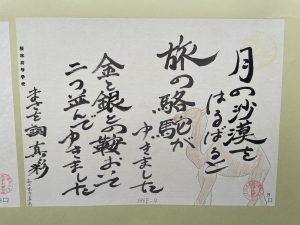 月の沙漠を
はるばると
旅の駱駝が
ゆきました
金と銀との鞍おいて
二つ並んでゆきました